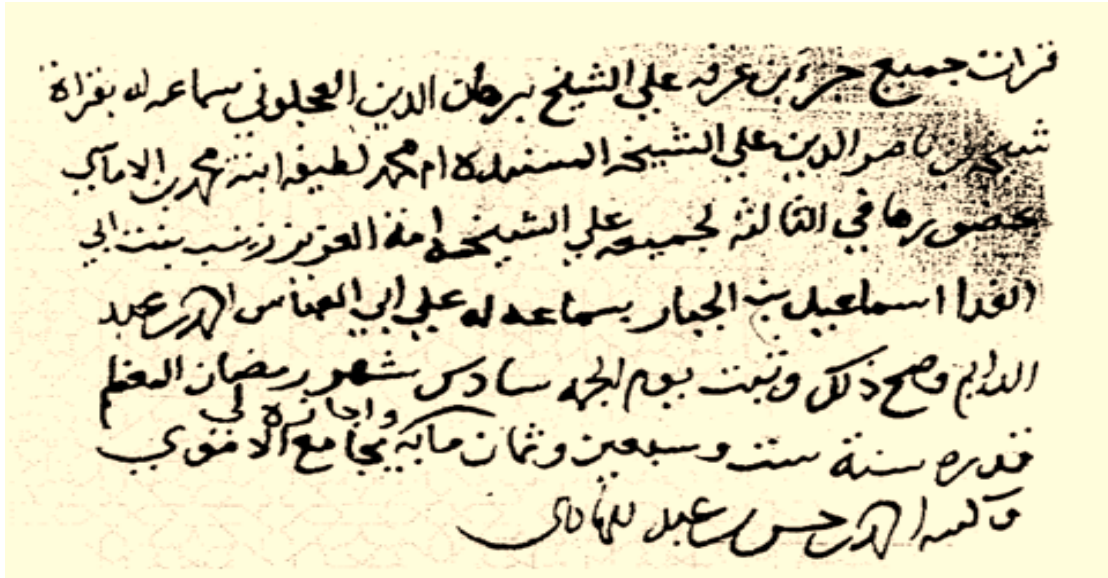 قرات جميع جزء بن عرفه علي الشيخ برهان الدين العجلوني بسماعه له بقراة
شيخه بن ناصر الدين علي الشيخه المسنده ام محمد لطيفه ابنة محمد بن الاماسي
بحضورها في الثالثه لجميعه علي الشيخه امة العزيز زينب بنت ابي
الفدا اسماعيل بن الخباز بسماعه له علي ابي العباس احمد بن عبد
الدايم وصح ذلك وثبت يوم الجمعه سادس شهر رمضان المعظم
واجازه لي
قدره سنة ست وسبعين وثمان مايه بجامع الاموي
وكتبه احمد بن حسن بن عبد الهادي